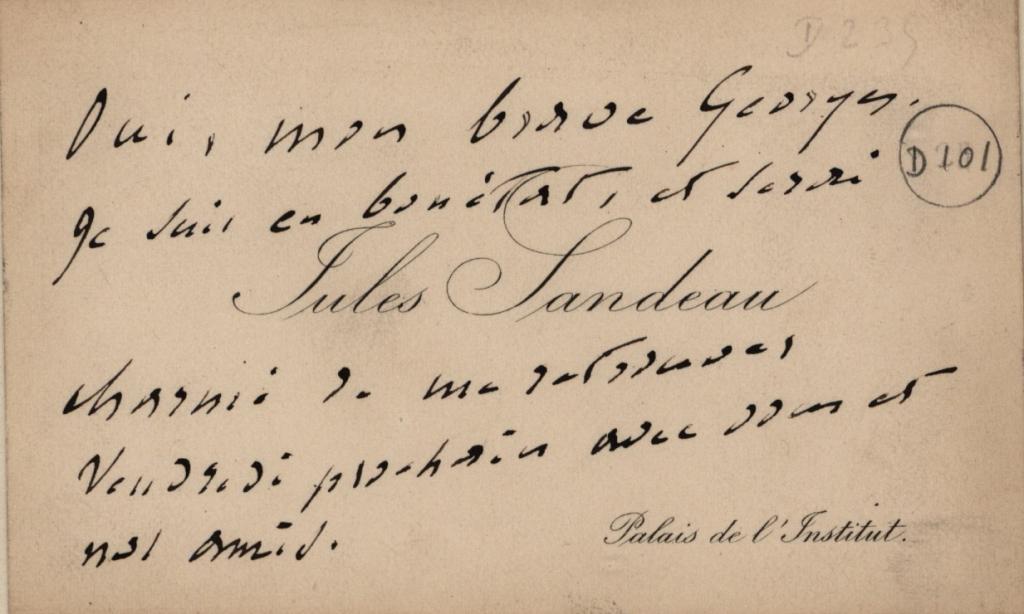 D 235
Oui, mon brave Georges.
D101
Je suis en bon état, et serai
Jules Sandeau
charmé de me retrouver
Vendredi prochain avec vous et
nos amis.
Palais de l'Institut.